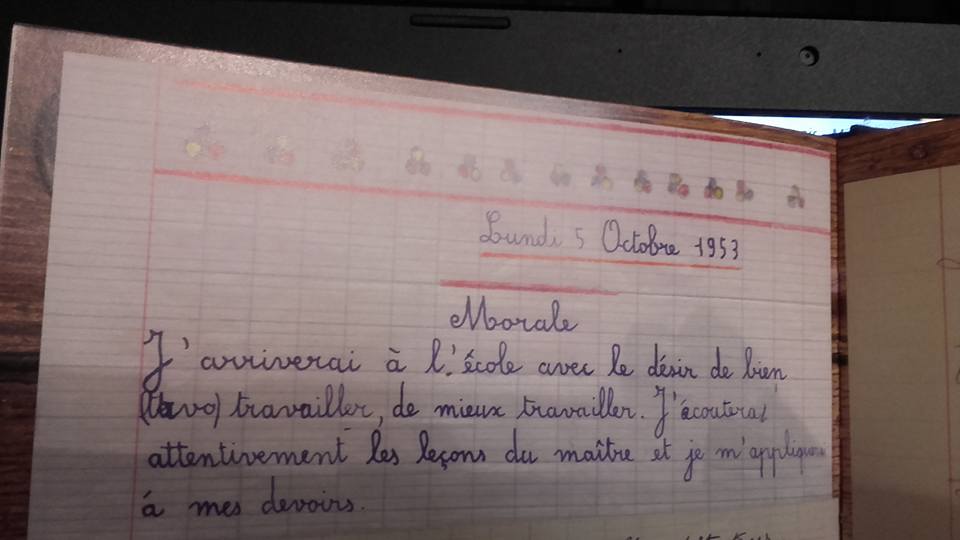 Lundi 5 Octobre 1953
Morale
J'arriverai à l'école avec le désir de bien
travailler, de mieux travailler. J'écouterai
attentivement les leçons du maître et je
à mes devoirs.